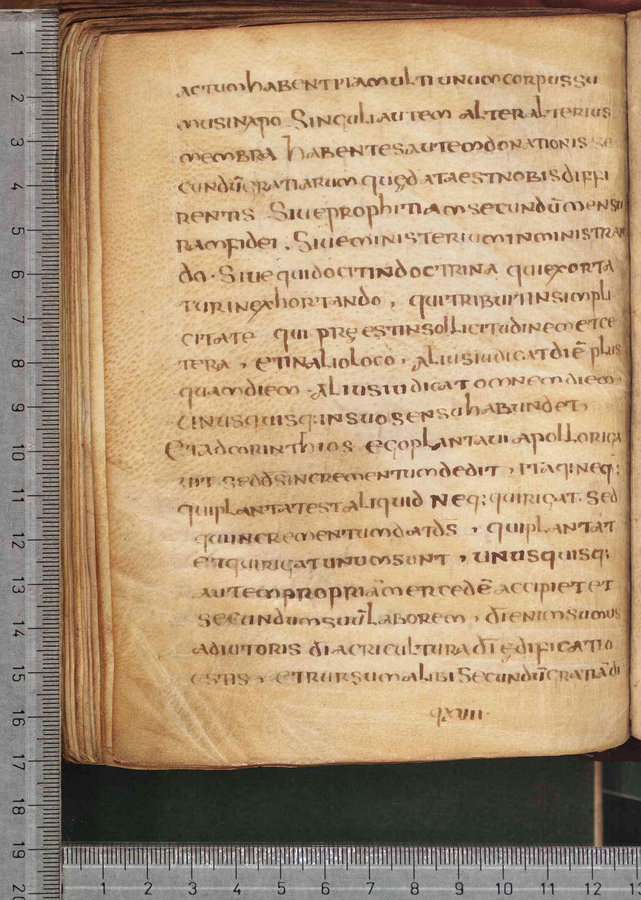 actum habent ita multi unum corpus su
mus in xpo Singuli autem alter alterius
membra habentes autem donationis se
cundū gratiarum quę data est nobis diffi
rentis Siue prophitiam secundū mensu
ram fidei . Siue ministerium in ministran
do . Siue qui docit in doctrina qui exorta
tur in exhortando , qui tribuit in simpli
citate qui pręest in sollicitudinem et ce
tera , et in alio loco , alius iudicat diē plus
quam diem . alius iudicat omnem diem ,
unusquisq: in suo sensu habundet ,
Et ad corinthios ego plantaui apollo riga
uit sed d̄s incrementum dedit , itaq: neq:
qui plantat est aliquid neq: qui rigat . sed
qui incrementum dat d̄s , qui plantat
et qui rigat unum sunt , unusquisq:
autem propriā mercedē accipiet et
secundum suū laborem , d̄i enim sumus
adiutoris d̄i agricultura d̄i ędificatio
estis , et rursum alibi secundū gratiā d̄i
q xuiii .